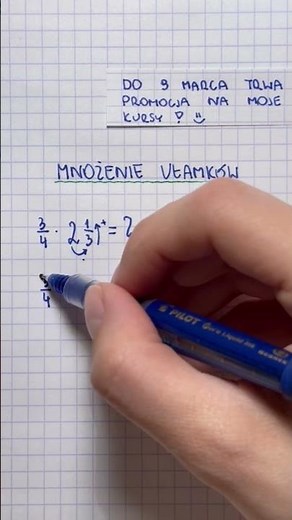 DO 9 MARCA TRWA
PROMOCJA NA MOJE
KURSY !
MNOŻENIE UŁAMKÓW
3/4 · 2 1/3 = 2
3/4
PILOT